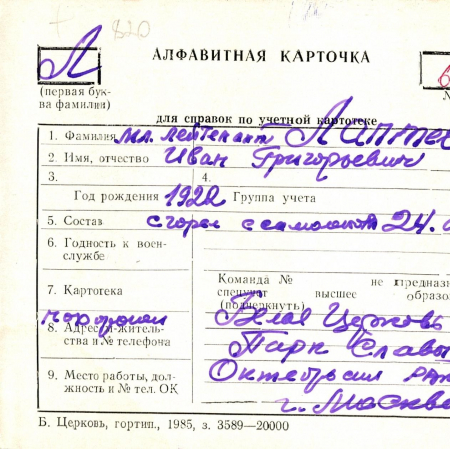 820
АЛФАВИТНАЯ КАРТОЧКА
Л
(первая бук-
ва фамилии)
для справок по учетной картотеке
1. Фамилия мл. лейтенант Лапте
2. Имя, отчество Иван Григорьевич
3. 4.
Год рождения 1922 Группа учета
5. Состав сгорел в самолете 24.
6. Годность к воен-
службе
7. Картотека
Команда № не предназ
спецучет высшее образо
(подчеркнуть)
похоронен Белая Церковь
8. Адрес жительст-
ва и № телефона Парк Славы
9. Место работы, дол-
жность и № тел. ОК Октябрьский
г. Москва
Б. Церковь, гортип., 1985, з. 3589—20000